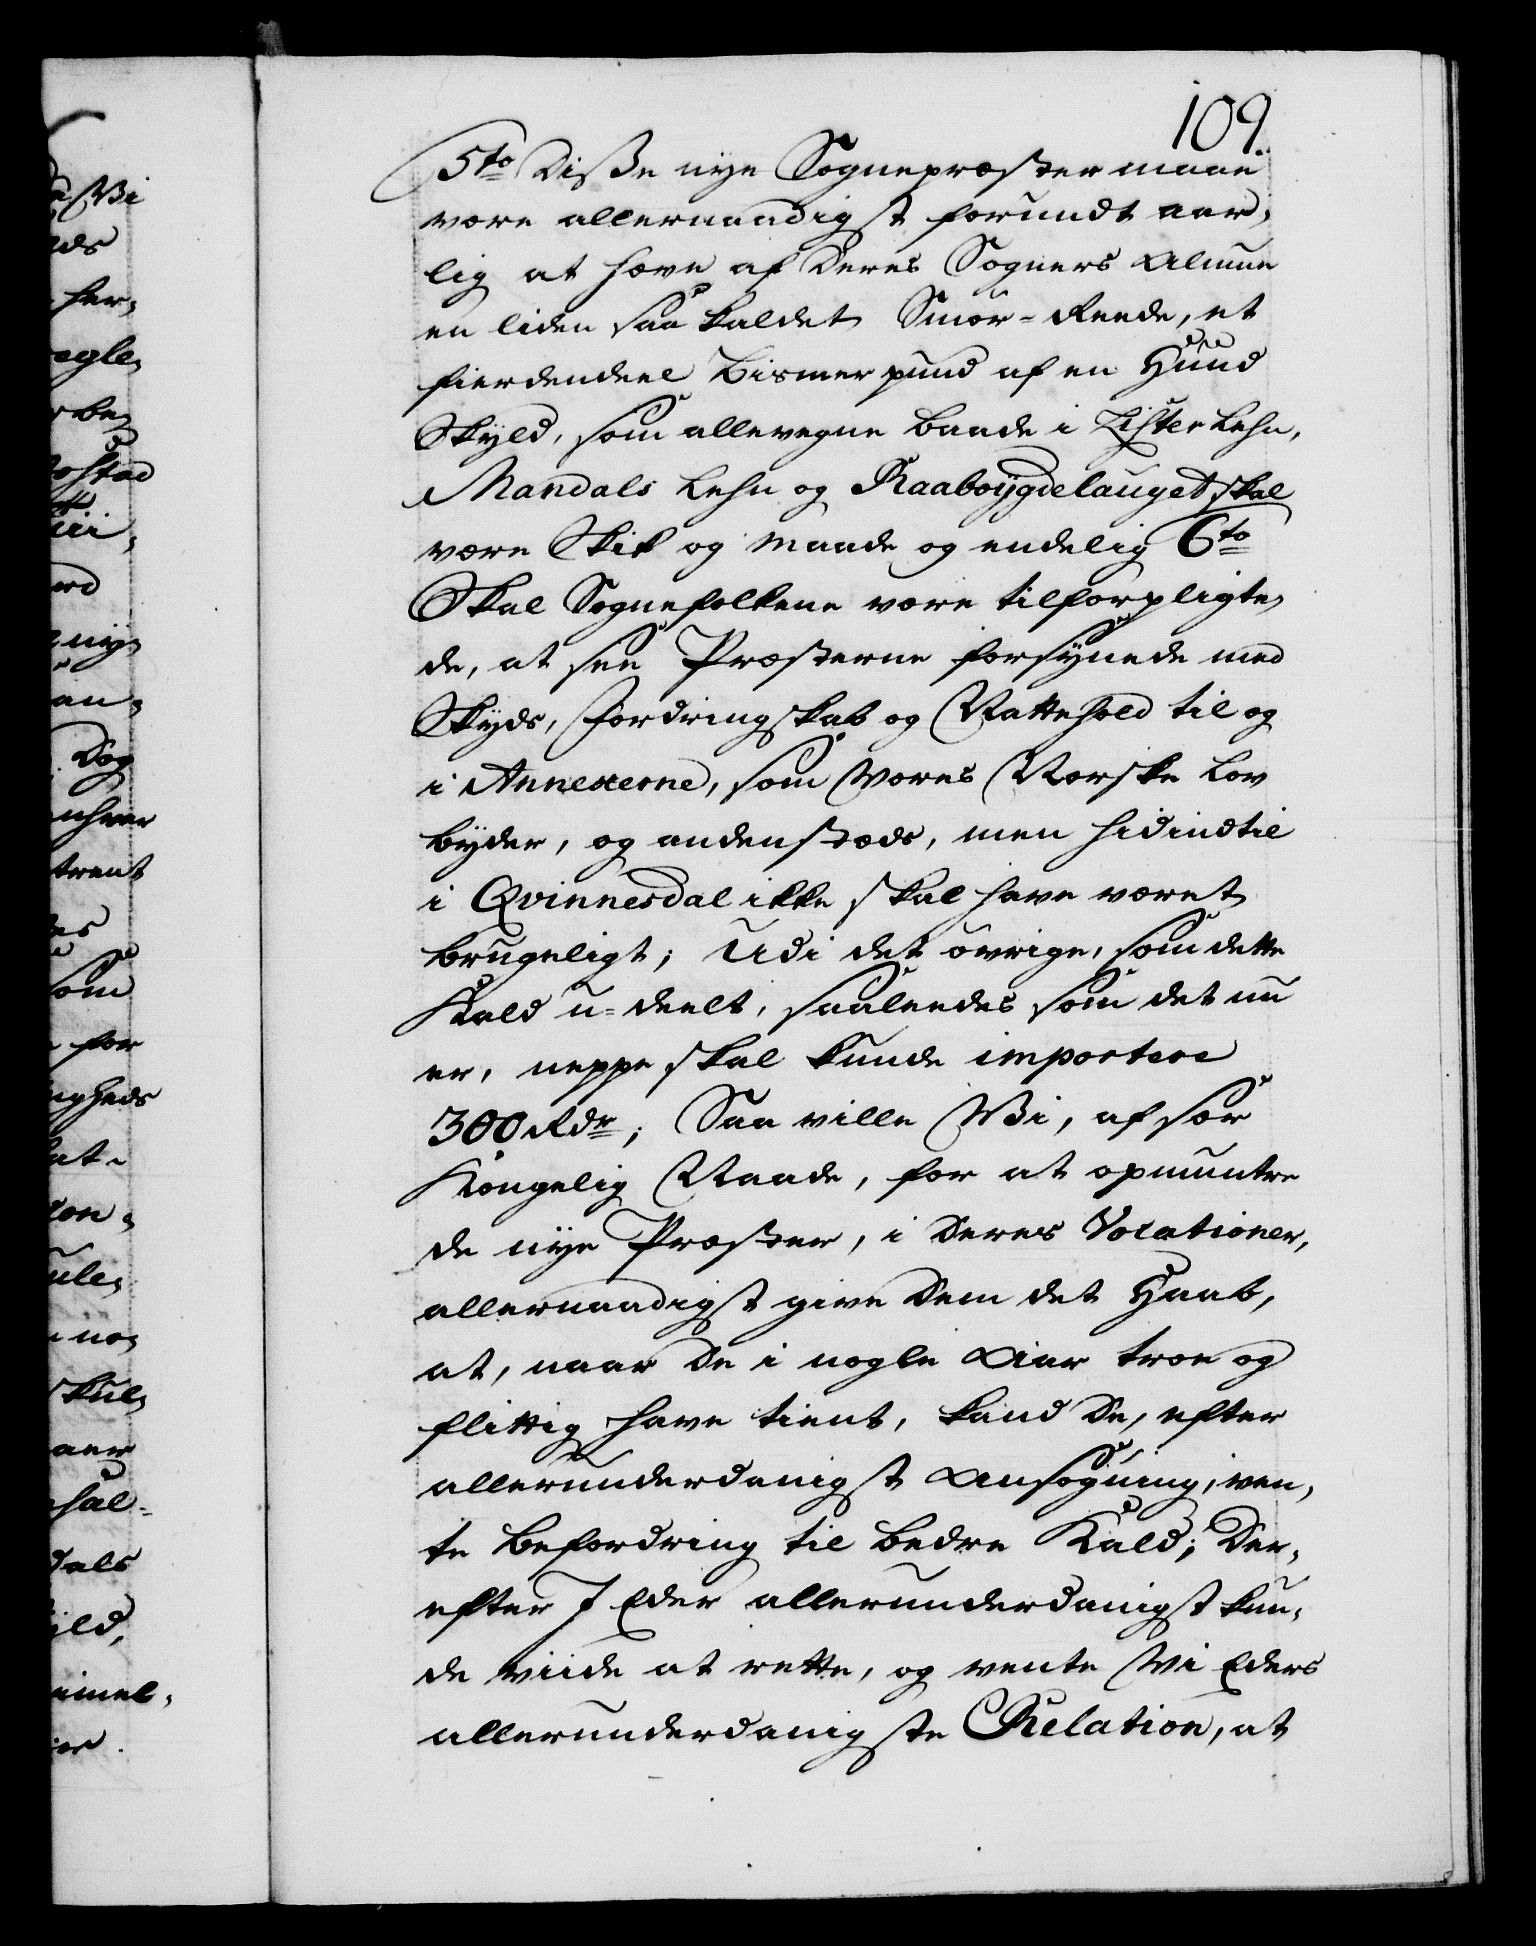 109.
5to Disse nye Sognepræster maae
være allernaadigst forundt aar-
lig at hæve af Deres Sogners Almue
en liden saa kaldet Smör-Reede, et
fierdendeel Bismerpund af en Huud
Skyld, som allevegne baade i Lister Lehn,
Mandals Lehn og Raaboygdelauget skal
være Skik og Maade og endelig 6to
Skal Sognefolkene være tilforpligte-
de, at see Præsterne forsynede med
Skyds, Fordringskab og Nattehold til og
i Annexerne, som Vores Norske Lov
byder, og andenstæds, men hidindtil
i Qvinnesdal ikke skal have været
brugeligt; Udi det övrige, som dette
Kald u-deelt, saaleedes som det nu
er, neppe skal kunde importere
300 Rdr; Saa ville Wi, af sær
Kongelig Naade, for at opmuntre
de nye Præster, i Deres Vocationer,
allernaadigst give Dem det Haab,
at, naar De i nogle Aar troe og
flittig have tient, kand De, efter
allerunderdanigst Ansögning, ven-
te Befordring til bedre Kald; Der-
efter I Eder allerunderdanigst kun-
de viide at rette, og vente Wi Eders
allerunderdanigste Relation, at